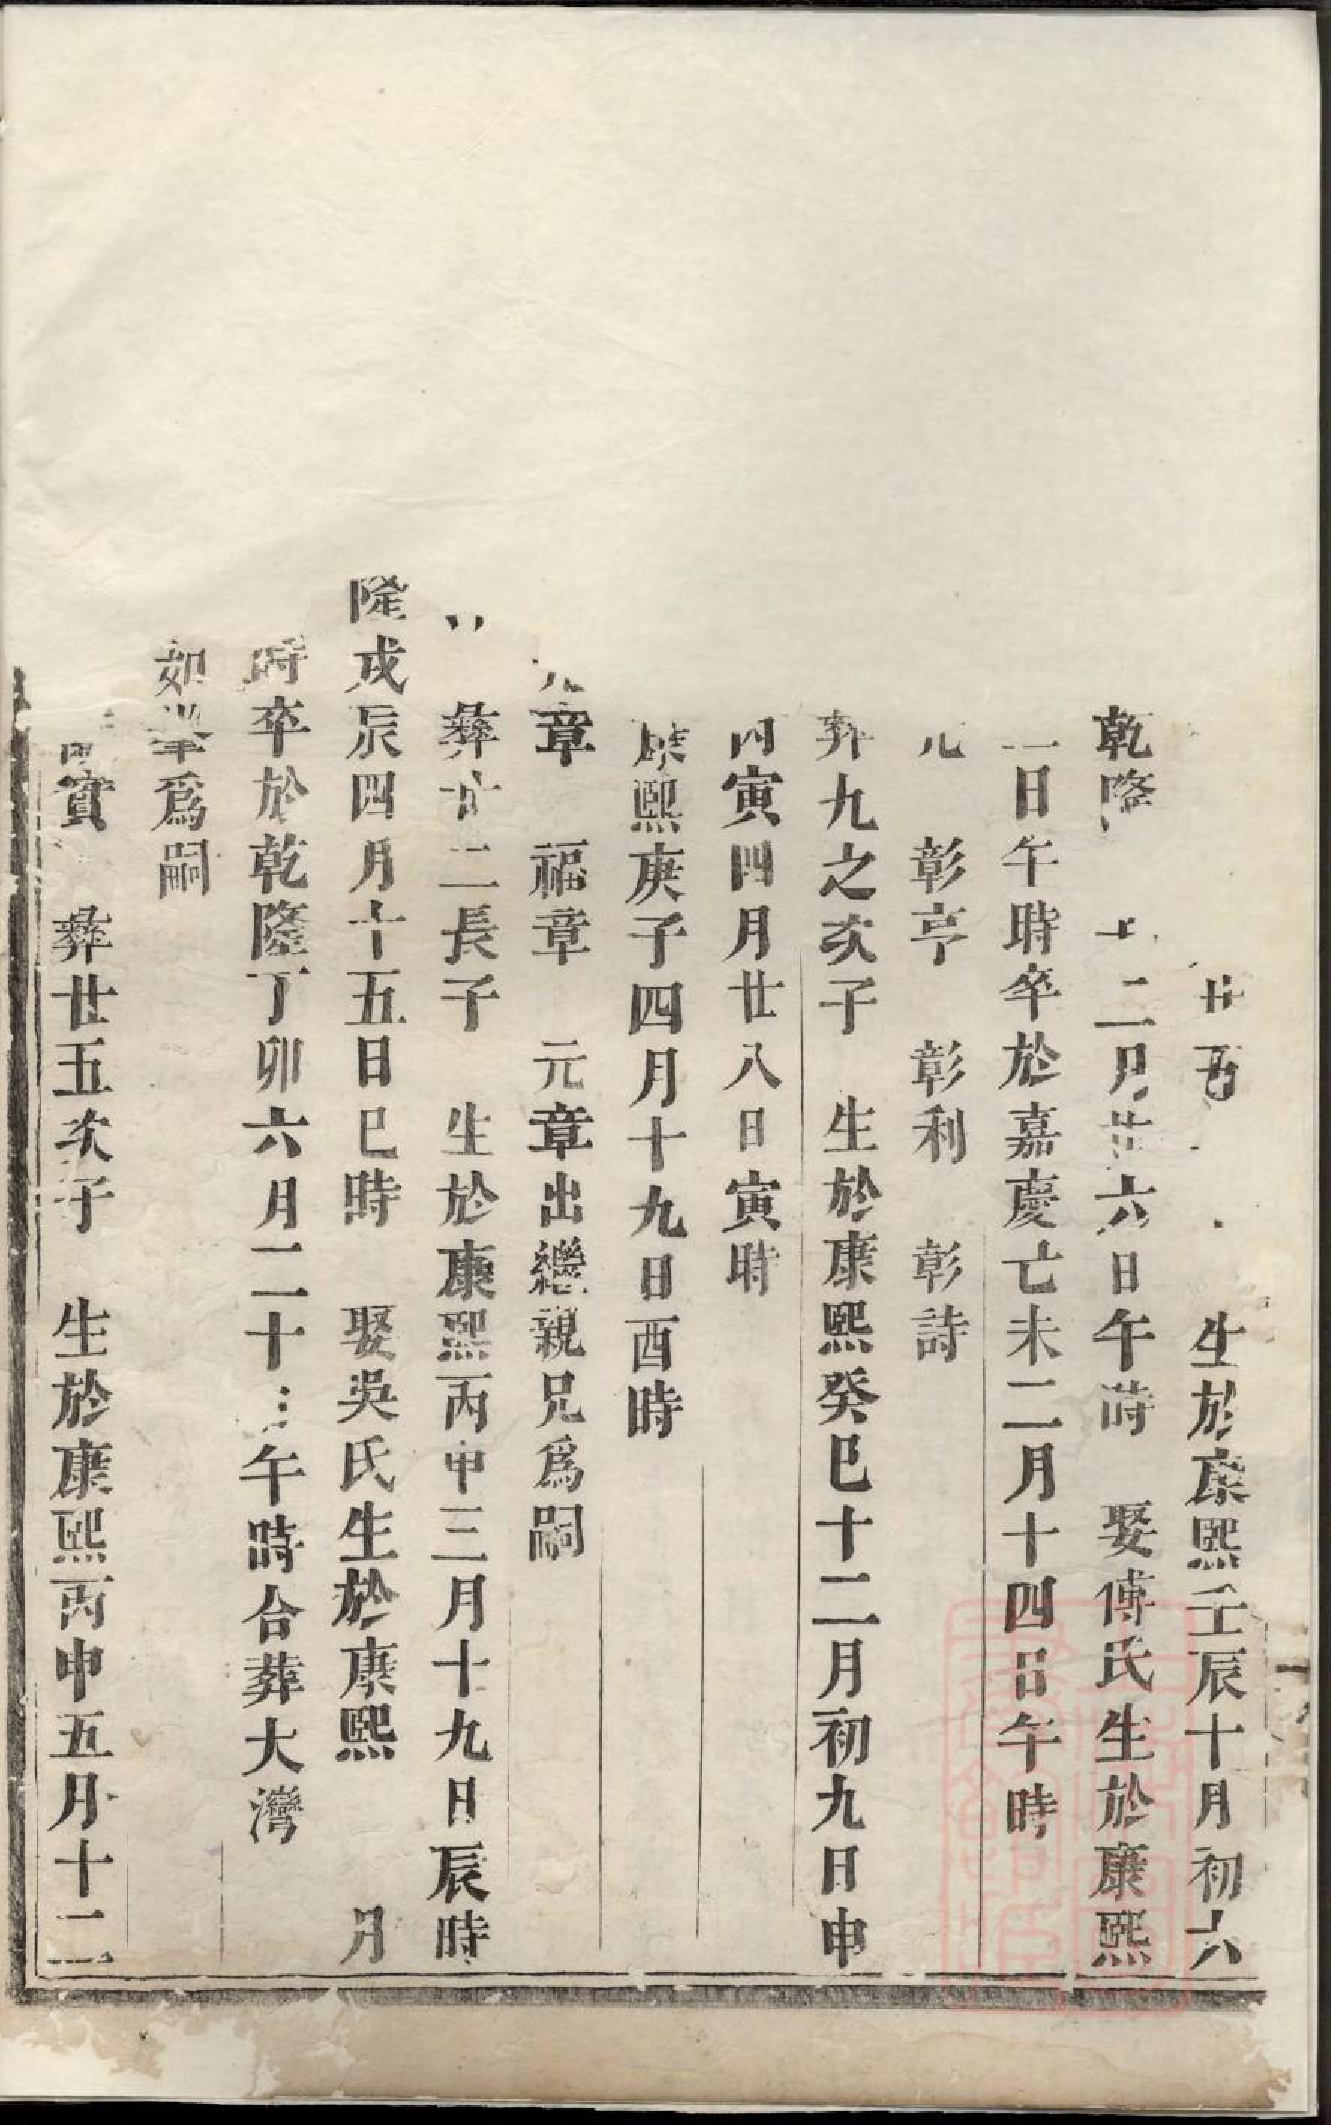 廿五 生於康熙壬辰十月初六
乾隆 二月廿六日午時 娶傅氏生於康熙
一日午時卒於嘉慶亡未二月十四日午時
元 彰亨 彰利 彰詩
彛九之次子 生於康熙癸巳十二月初九日申
丙寅四月廿八日寅時
康熙庚子四月十九日酉時
章 福章 元章出繼親兄爲嗣
彛廿二長子 生於康熙丙申三月十九日辰時
隆戍辰四月十五日巳時 娶吳氏生於康熙 月
時卒於乾隆丁卯六月二十 午時合葬大灣
如攀爲嗣
實 彛廿五次子 生於康熙丙申五月十二